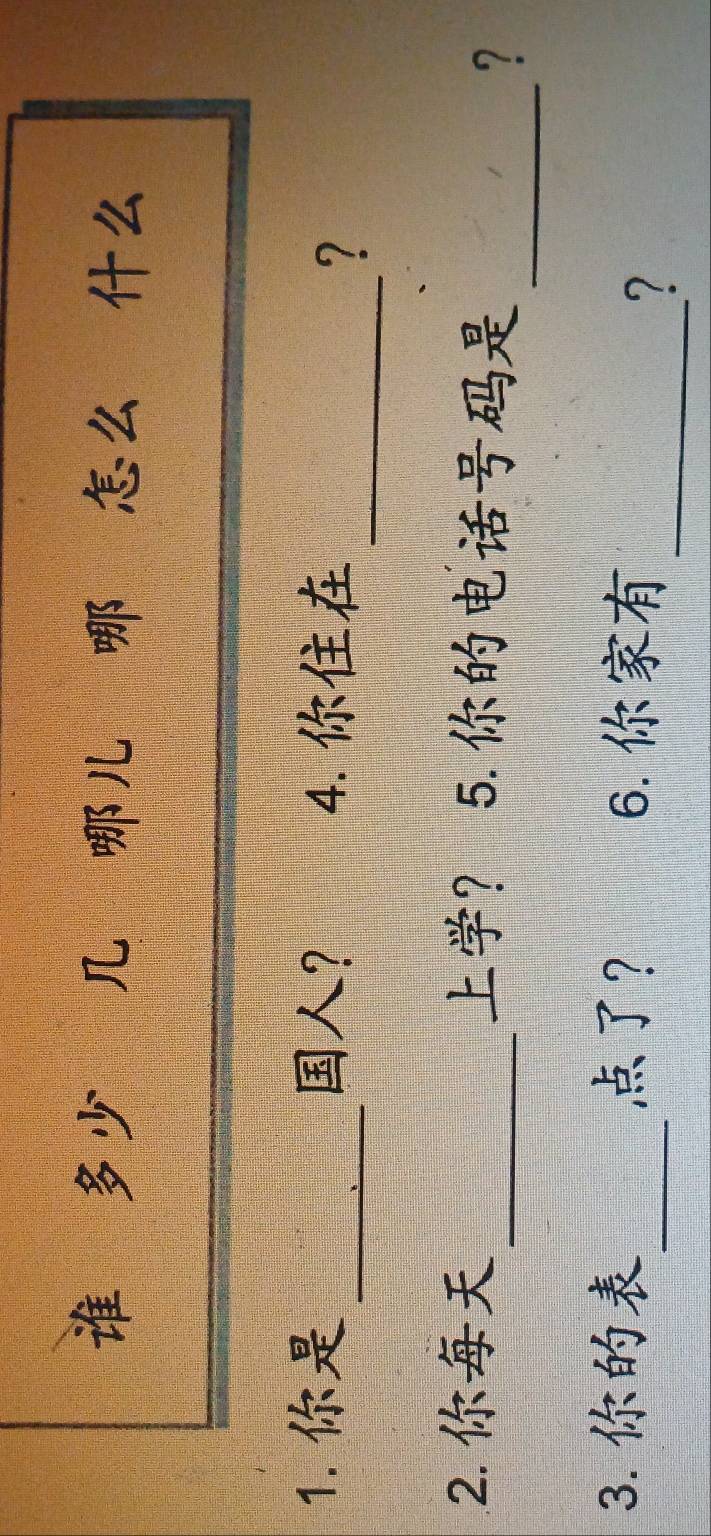 谁 多少 几 哪儿 哪 怎么 什么
1. 你是______国人? 4. 你住在________?
2. 你每天______上学? 5. 你的电话号码是______?
3. 你的表____点了? 6. 你家有________?